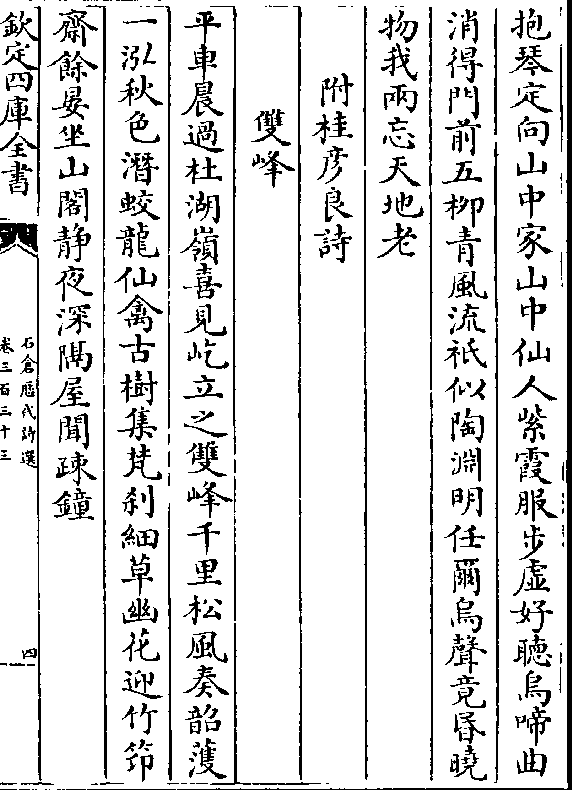 抱琴定向山中家山中仙人紫霞服步虛好聽烏啼曲
消得門前五柳青風流衹似陶淵明任爾烏聲竟昬曉
物我兩忘天地老
附桂彦良詩
雙峰
平車晨過杜湖嶺喜見屹立之雙峰千里松風奏韶頀
一泓秋色潛蛟龍仙禽古樹集梵刹細草幽花迎竹笻
齋餘晏坐山閣静夜深隔屋聞疎鐘
欽定四庫全書
石倉歴代詩選
卷三百三十三
四